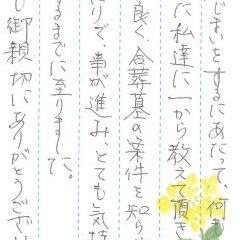 じまいをするにあたって、何も
に私達に一から教えて頂き
良く、合葬墓の案件を知ら
りで、事が進み、とても気持
するまでに至りました。
御親切にありがとうござい